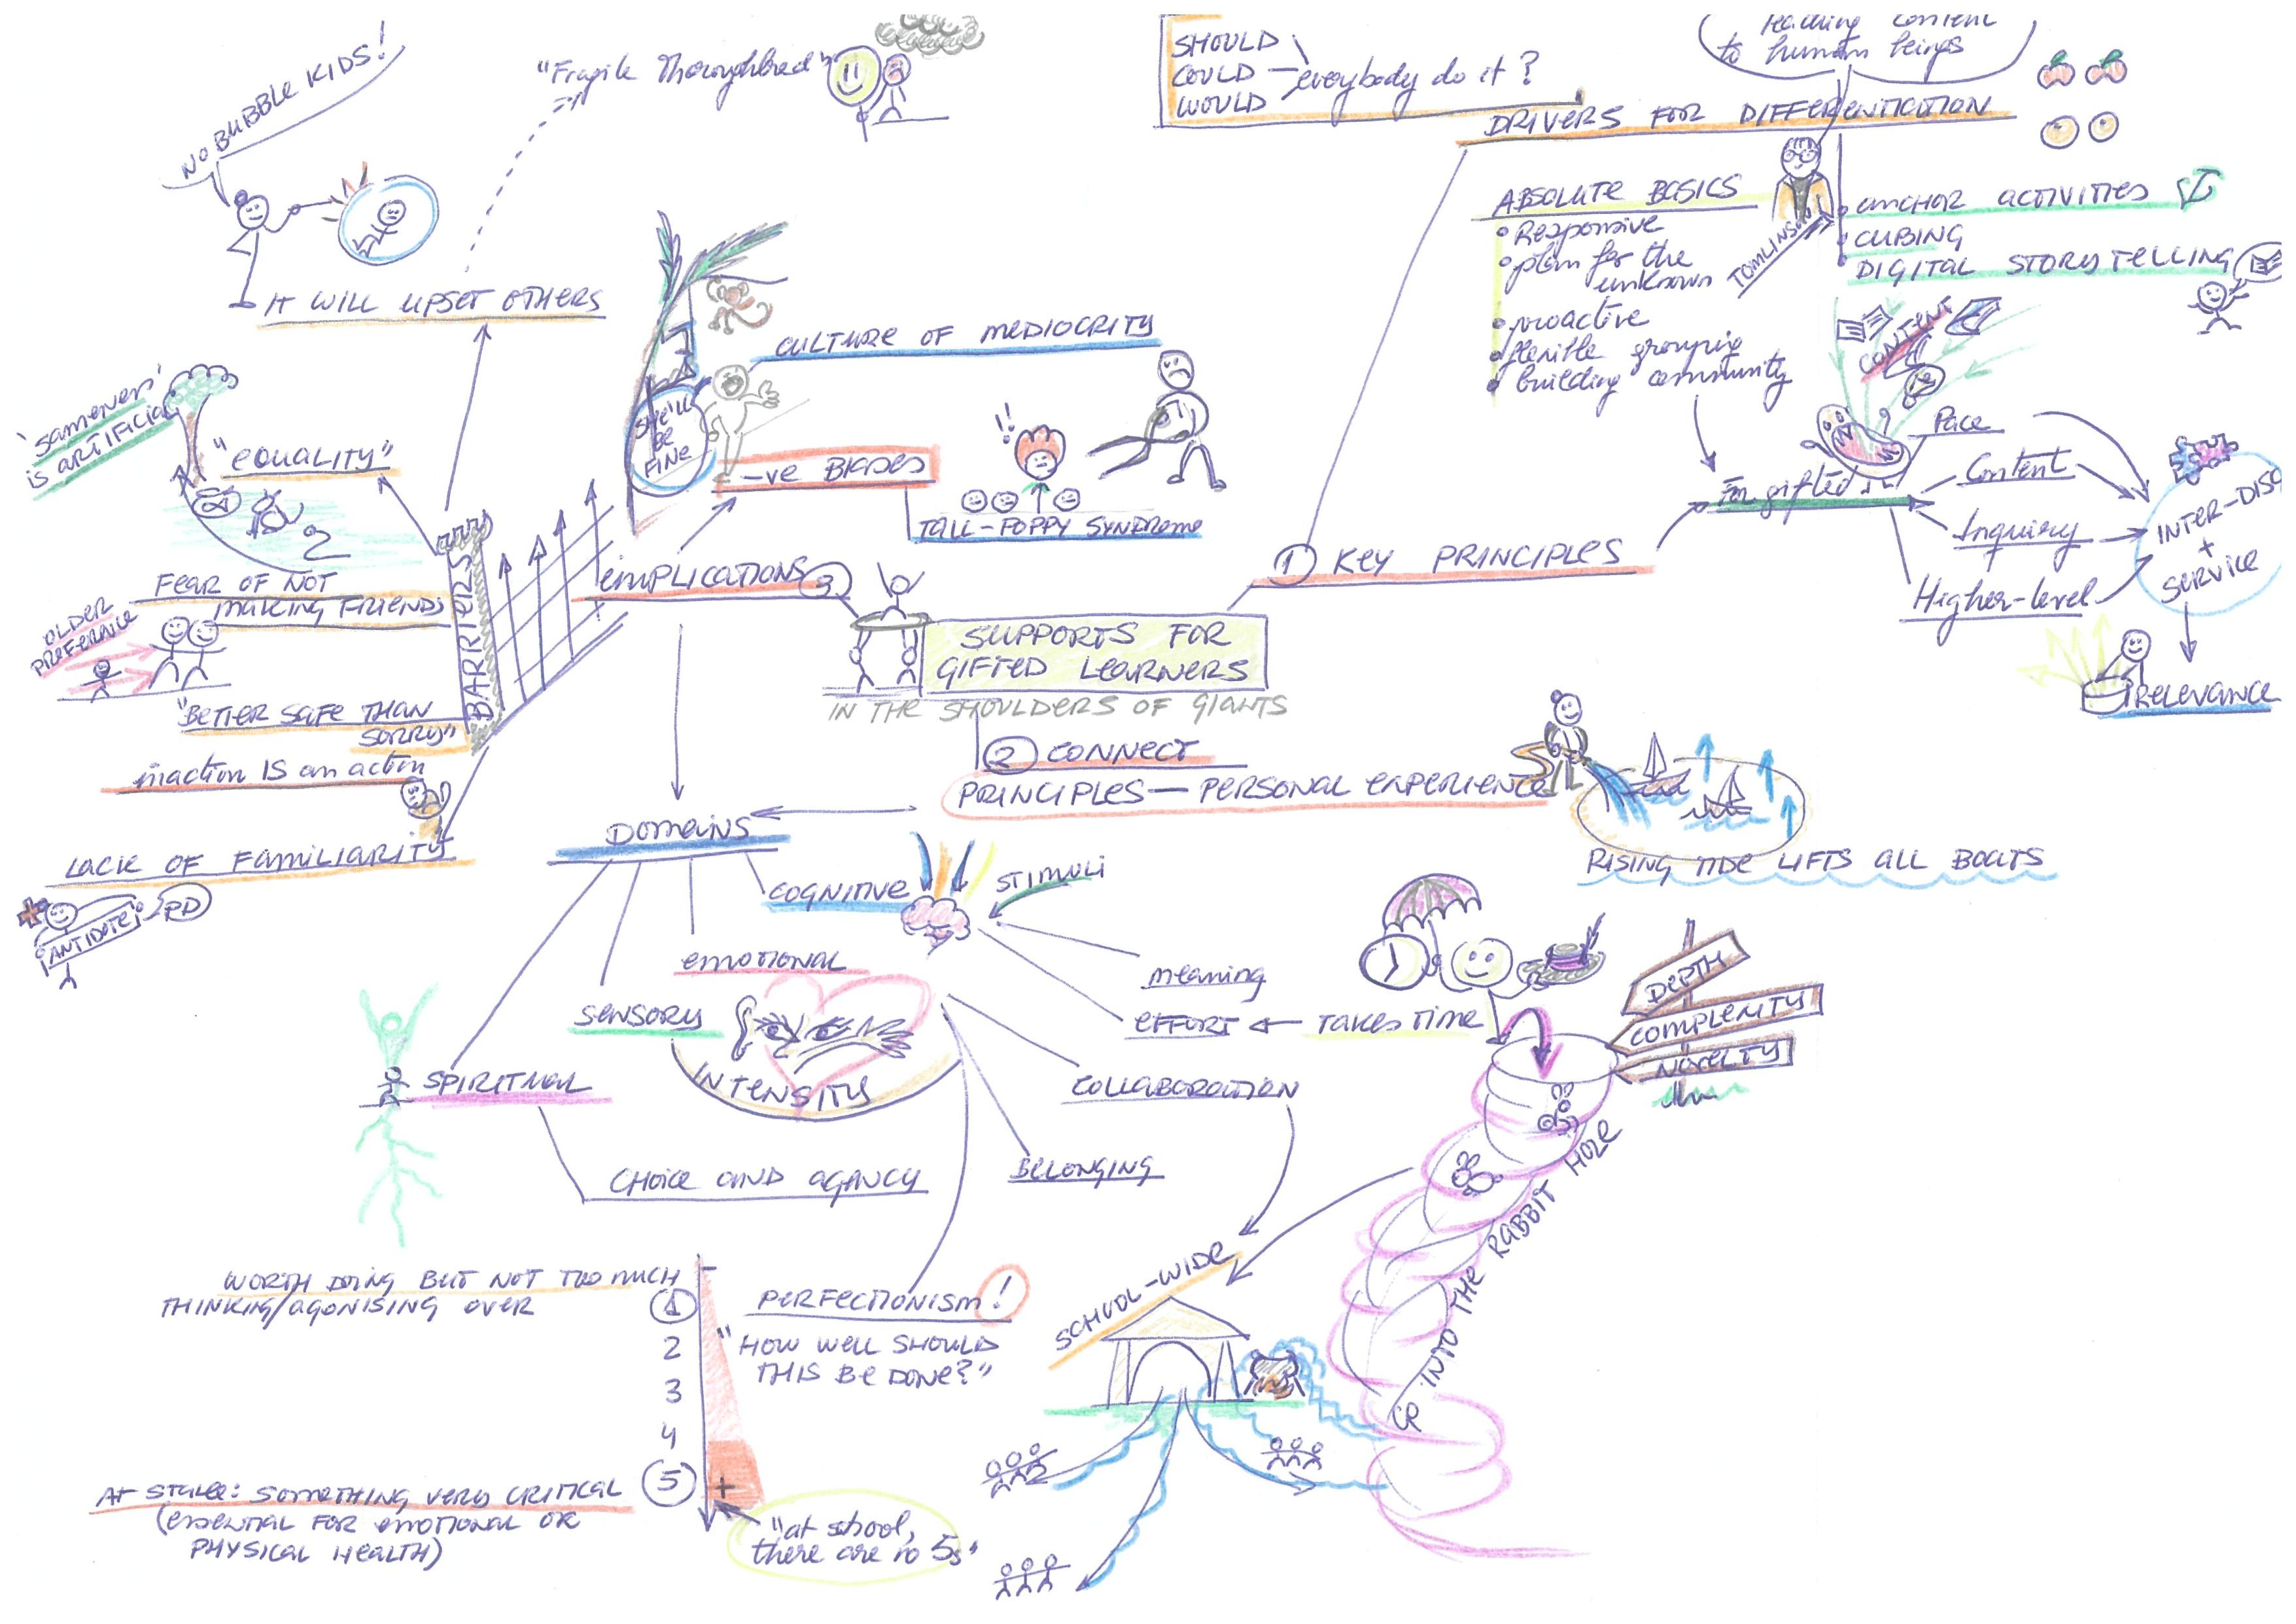 NO BUBBLE KIDS!
"Fragile Thoroughbred"
SHOULD
COULD
WOULD
everybody do it?
teaching content
to human beings
DRIVERS FOR DIFFERENTICATION
ABSOLUTE BASICS
Responsive
plan for the
unknown
proactive
flexible grouping
building community
TOMLINSON
ANCHOR ACTIVITIES
CUBING
DIGITAL STORYTELLING
CONTENT
IT WILL UPSET OTHERS
CULTURE OF MEDIOCRITY
SHE'LL
BE
FINE
-ve BIASES
!!
TALL-POPPY SYNDROME
'sameness'
is artificial
"EQUALITY"
FEAR OF NOT
MAKING FRIENDS
OLDER
PREFERENCE
BARRIERS
"BETTER SAFE THAN
SORRY"
inaction IS an action
LACK OF FAMILIARITY
ANTIDOTE
PD
IMPLICATIONS 3
1 KEY PRINCIPLES
For gifted
Pace
Content
Inquiry
Higher-level
INTER-DISC
+
SERVICE
RELEVANCE
SUPPORTS FOR
GIFTED LEARNERS
IN THE SHOULDERS OF GIANTS
2 CONNECT
PRINCIPLES — PERSONAL EXPERIENCE
RISING TIDE LIFTS ALL BOATS
DOMAINS
COGNITIVE
STIMULI
EMOTIONAL
SENSORY
INTENSITY
SPIRITUAL
CHOICE AND AGENCY
meaning
EFFORT
TAKES TIME
COLLABORATION
BELONGING
DEPTH
COMPLEXITY
NOVELTY
INTO THE RABBIT HOLE
SCHOOL-WIDE
WORTH DOING BUT NOT TOO MUCH
THINKING/AGONISING OVER
1
2
3
4
5
+
PERFECTIONISM!
"HOW WELL SHOULD
THIS BE DONE?"
AT STAKE: SOMETHING VERY CRITICAL
(ESSENTIAL FOR EMOTIONAL OR
PHYSICAL HEALTH)
"at school,
there are no 5s"